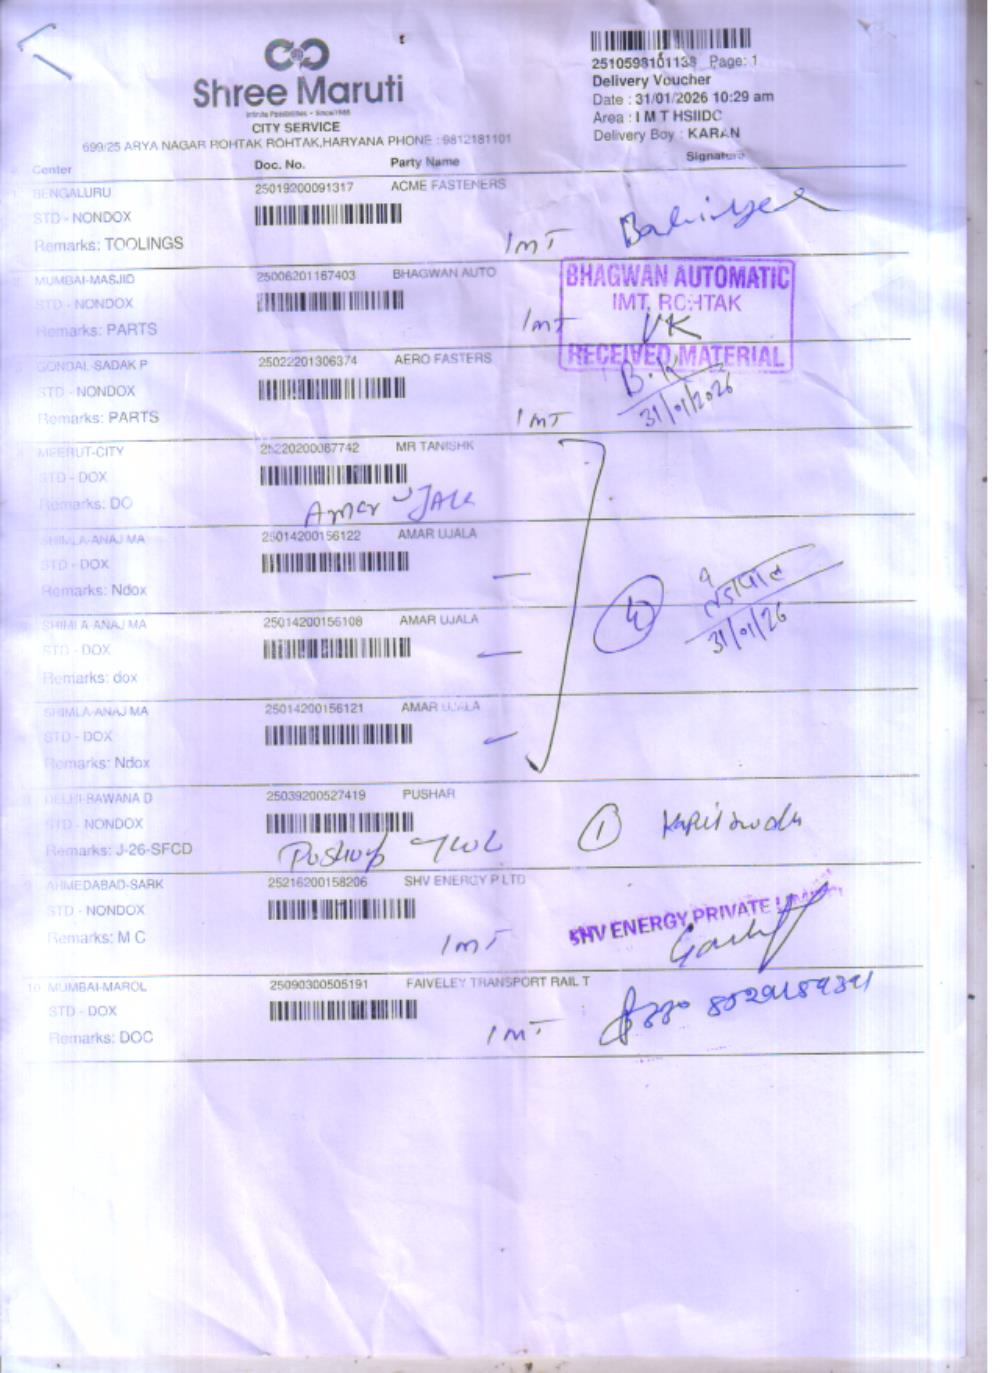 Shree Maruti
Infinite Possibilities - Since 1985
CITY SERVICE
699/25 ARYA NAGAR ROHTAK ROHTAK,HARYANA PHONE : 9812181101
2510598101138 Page: 1
Delivery Voucher
Date : 31/01/2026 10:29 am
Area : I M T HSIIDC
Delivery Boy : KARAN
Center Doc. No. Party Name Signature
BENGALURU 25019200091317 ACME FASTENERS
STD - NONDOX
Remarks: TOOLINGS IMT
MUMBAI-MASJID 25006201167403 BHAGWAN AUTO
STD - NONDOX
Remarks: PARTS IMT
BHAGWAN AUTOMATIC
IMT, ROHTAK
VK
RECEIVED MATERIAL
GONDAL-SADAK P 25022201306374 AERO FASTERS
STD - NONDOX
Remarks: PARTS IMT
31/01/2026
MEERUT-CITY 25220200087742 MR TANISHK
STD - DOX
Remarks: DO Amar
SHIMLA-ANAJ MA 25014200156122 AMAR UJALA
STD - DOX
Remarks: Ndox
31/01/26
SHIMLA-ANAJ MA 25014200156108 AMAR UJALA
STD - DOX
Remarks: dox
SHIMLA-ANAJ MA 25014200156121 AMAR UJALA
STD - DOX
Remarks: Ndox
DELHI-BAWANA D 25039200527419 PUSHAR
STD - NONDOX
Remarks: J-26-SFCD
1
9 AHMEDABAD-SARK 25216200158206 SHV ENERGY P LTD
STD - NONDOX
Remarks: M C IMT
SHV ENERGY PRIVATE
10 MUMBAI-MAROL 25090300505191 FAIVELEY TRANSPORT RAIL T
STD - DOX
Remarks: DOC IMT